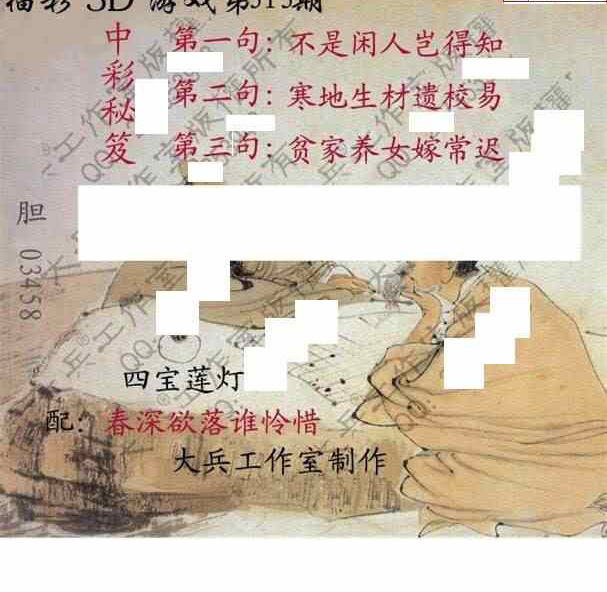 福彩 3D 游戏 第315期
中彩秘笈
第一句：不是闲人岂得知
第二句：寒地生材遗校易
第三句：贫家养女嫁常迟
胆 03458
四宝莲灯
配：春深欲落谁怜惜
大兵工作室制作